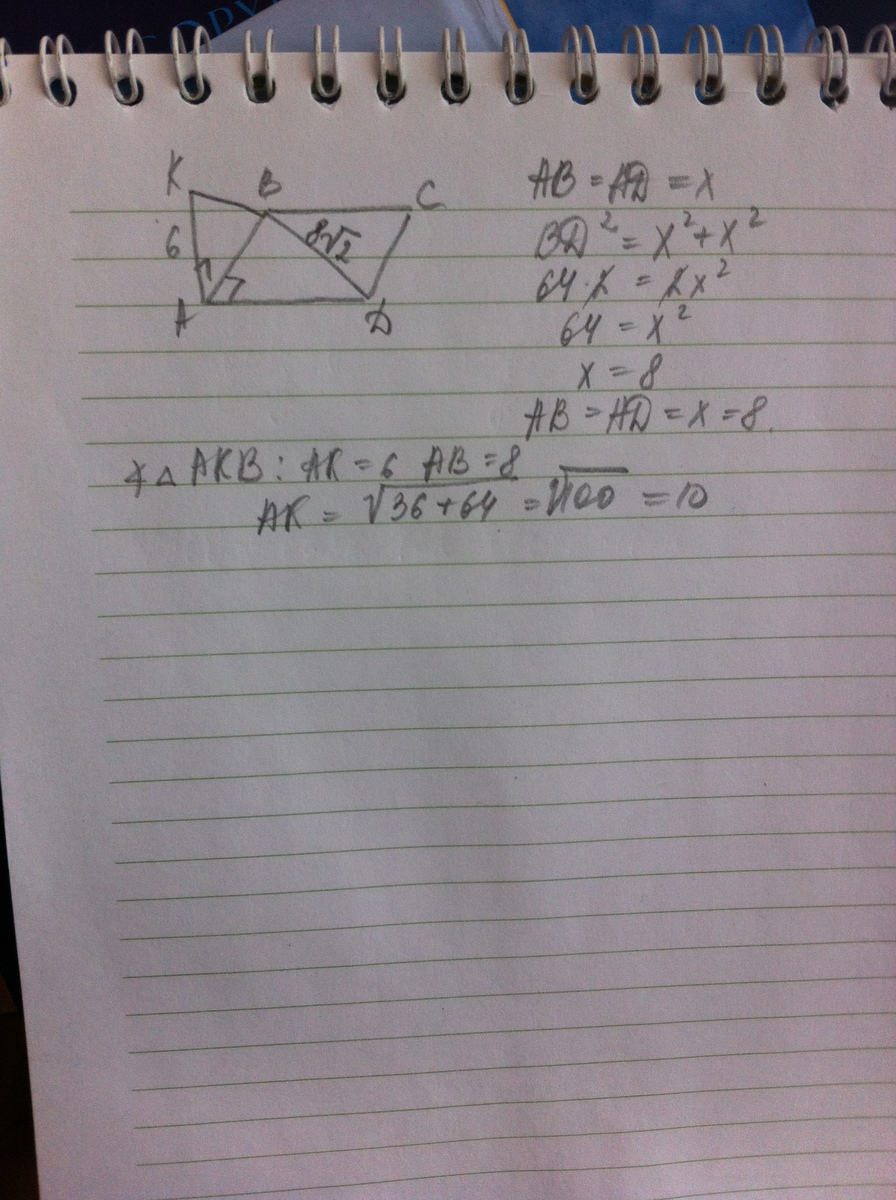 COPY
K
B
C
6
8√2
A
D
AB = AD = x
BD² = x² + x²
64·2 = 2x²
64 = x²
x = 8
AB = AD = x = 8.
∢ △ AKB : AK = 6 AB = 8
AK = √36+64 = √100 = 10